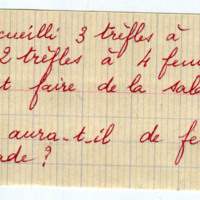 cueilli 3 trèfles à
2 trèfles à 4 feui
t faire de la sala
aura-t-il de fe
ade ?